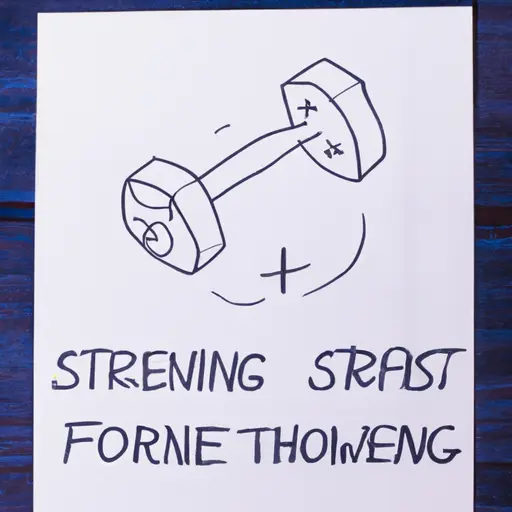 STRENING SRAST
FORNE THOWENG